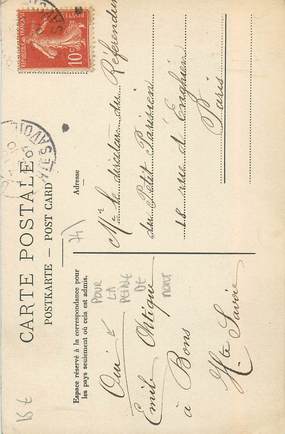 CARTE POSTALE
POSTKARTE - POST CARD
Espace réservé à la correspondance pour
les pays seulement où cela est admis.
Adresse
Oui
POUR
LA
PEINE
DE
MORT
Emile
à Bons
Hte Savoie
Mr le directeur du Referendum
du Petit Parisien
18 rue d'Enghien
Paris
10c